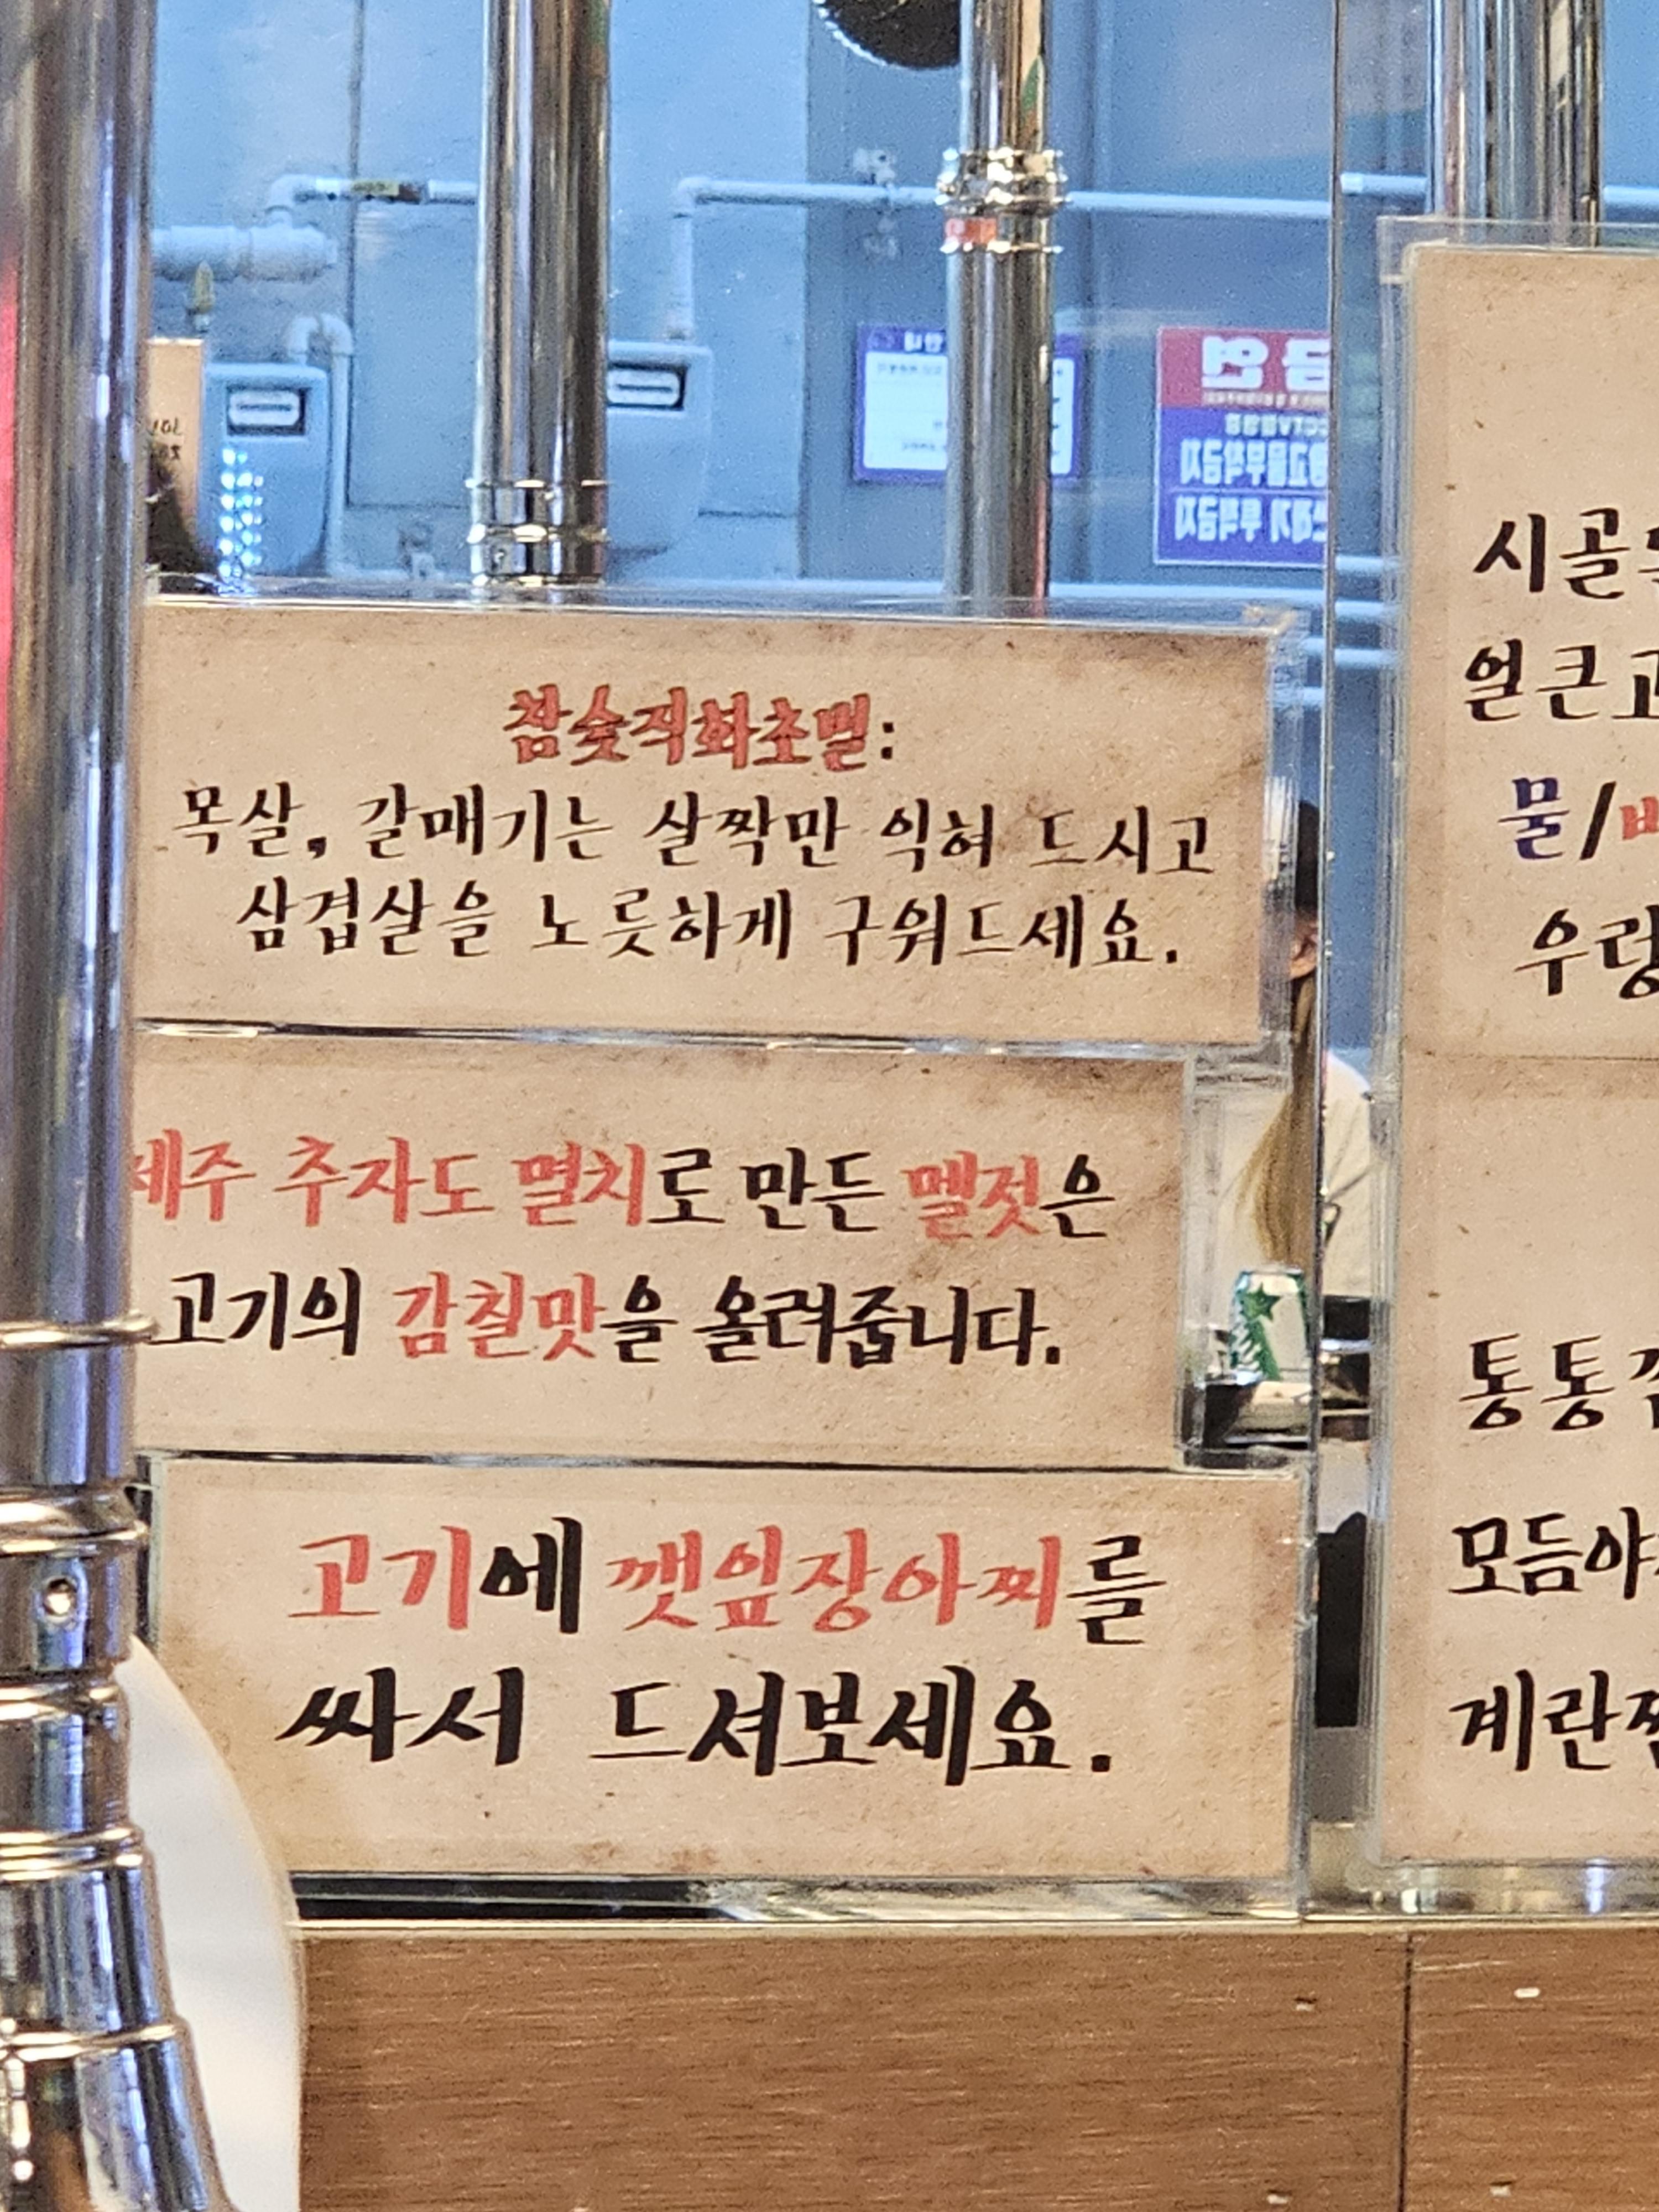 참숯직화초벌:
목살, 갈매기는 살짝만 익혀 드시고
삼겹살을 노릇하게 구워드세요.
제주 추자도 멸치로 만든 멜젓은
고기의 감칠맛을 올려줍니다.
고기에 깻잎장아찌를
싸서 드셔보세요.
시골
얼큰
물/
우렁
통통
모듬야
계란
금연